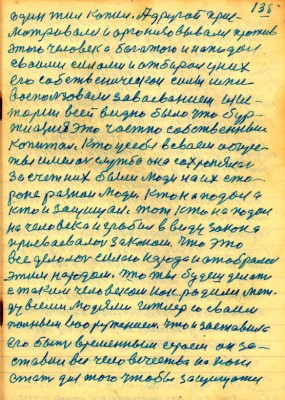 136
один жил копил. А другой при-
сматривали и организовывали против
этого человека богатого и нападали
своими силами и отбирали у них
его собственнические силы или
воспользовали завоеванием
всей видно было что бур-
жуазия это частно собственный
капитал. Кто у себя в своем обще-
стве имел от службе она сохраняла
За счет них были люди на их сто-
роне разной люди. Кто нападал а
кто и защищал. тот кто нападал
на человека и грабил в виду закона
присваевался законом. Что это
все делалось силою народа и отобралось
этим народом. Что ты будеш делать
с таким человеком как родился меж-
ду всеми людями гитлер со своим
полным вооружением что и заставило
его быть временным героем он за-
ставил все человечество на ноги
стать для того чтобы защищать